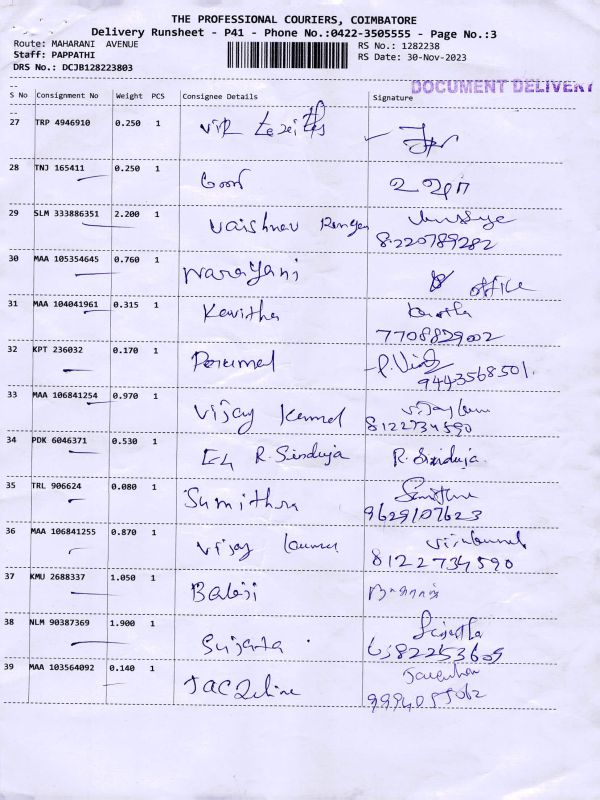 THE PROFESSIONAL COURIERS, COIMBATORE
Delivery Runsheet - P41 - Phone No.:0422-3505555 - Page No.:3
Route: MAHARANI AVENUE
RS No.: 1282238
Staff: PAPPATHI
RS Date: 30-Nov-2023
DRS No.: DCJB128223803
DOCUMENT DELIVERY
S No Consignment No Weight PCS Consignee Details Signature
27 TRP 4946910 0.250 1
28 TNJ 165411 0.250 1
29 SLM 333886351 2.200 1 Vaishnav
8220789282
30 MAA 105354645 0.760 1 Narayani office
31 MAA 104041961 0.315 1 Kavitha
7708829002
32 KPT 236032 0.170 1 Perumal
9443568501.
33 MAA 106841254 0.970 1 Vijay
8122734590
34 PDK 6046371 0.530 1 R. Sinduja R. Sinduja.
35 TRL 906624 0.080 1 Sumithra
9629107623
36 MAA 106841255 0.870 1 Vijay
8122734590
37 KMU 2688337 1.050 1 Balaji
38 NLM 90387369 1.900 1 Sujata
6382253609
39 MAA 103564092 0.140 1 Jacqeline